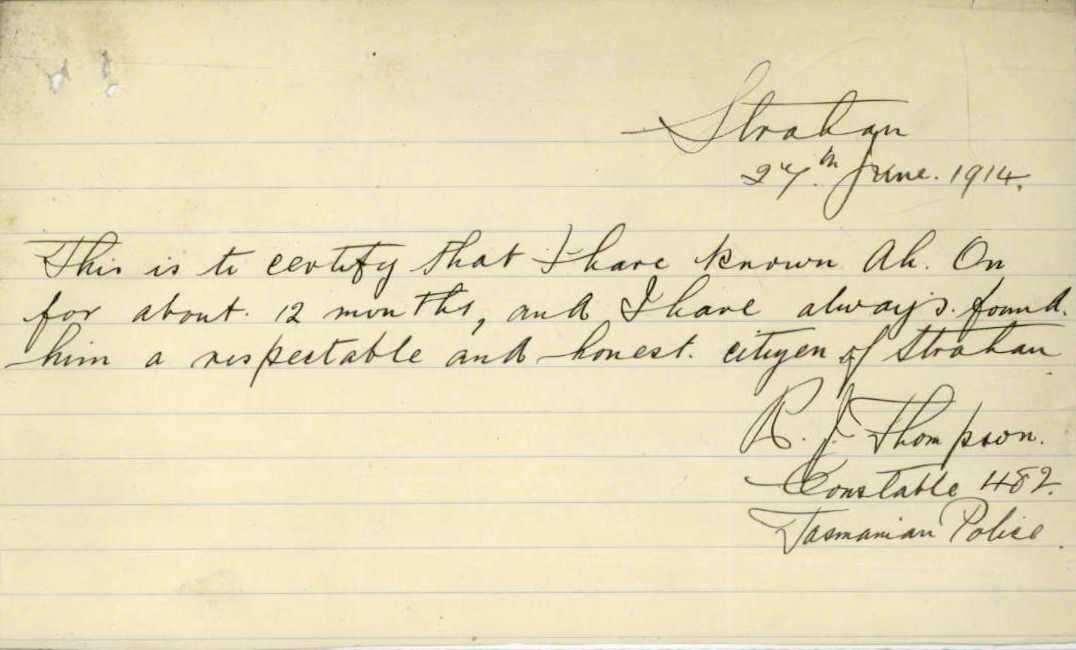 Strahan
27th June. 1914.
This is to certify that I have known Ah. On
for about. 12 months, and I have always. found.
him a respectable and honest. citizen of Strahan
R. J. Thompson.
Constable 482.
Tasmanian Police.